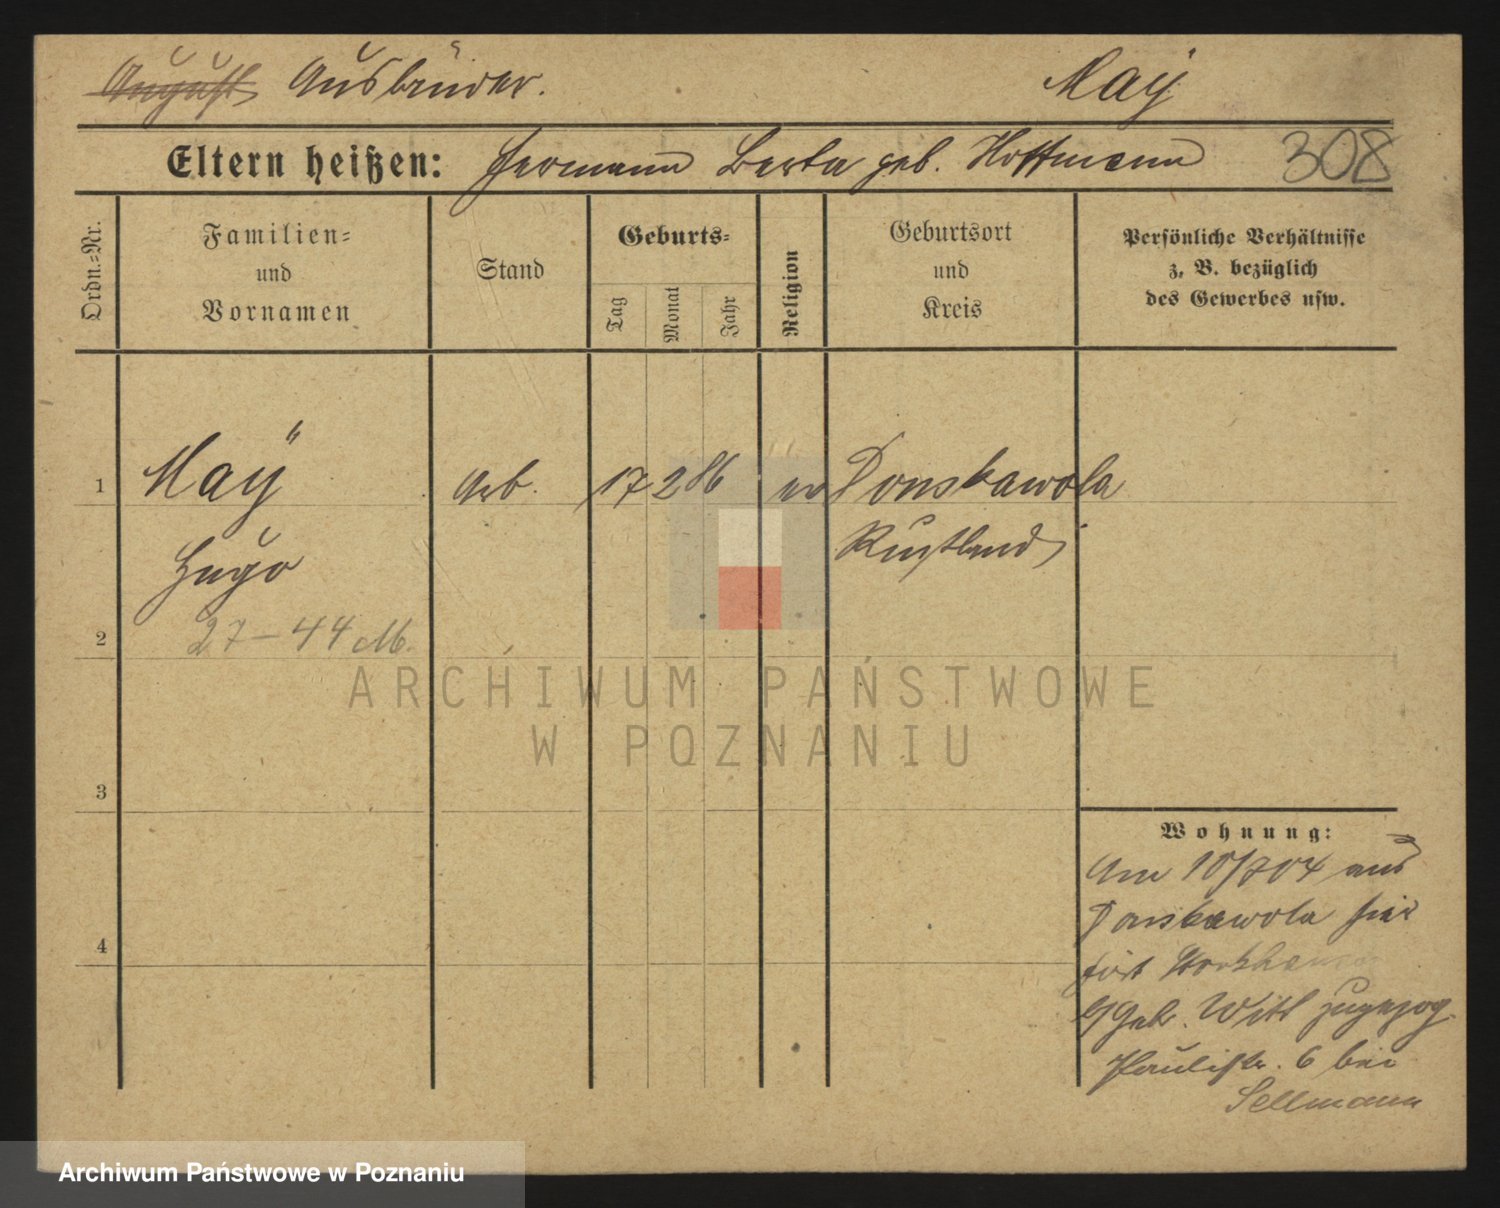 August Ausländer. Maÿ
Eltern heißen: Hermann Berta geb. Hoffmann 308
Ordn.-Nr.
Familien-
und
Vornamen
Stand
Geburts-
Tag
Monat
Jahr
Religion
Geburtsort
und
Kreis
Persönliche Verhältnisse
z. B. bezüglich
des Gewerbes usw.
1 Maÿ Arb. 17 2 86 ev Donskawola
Hugo Rußland
2 27-44 M.
3
4
Wohnung:
Am 10/7 04 aus
Donskawola hier
Witt zugezog.
Paulistr. 6 bei
Sellmann
ARCHIWUM PAŃSTWOWE
W POZNANIU
Archiwum Państwowe w Poznaniu